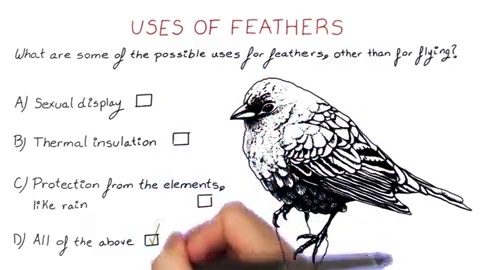 USES OF FEATHERS
What are some of the possible uses for feathers, other than for flying?
A) Sexual display
B) Thermal insulation
C) Protection from the elements,
like rain
D) All of the above